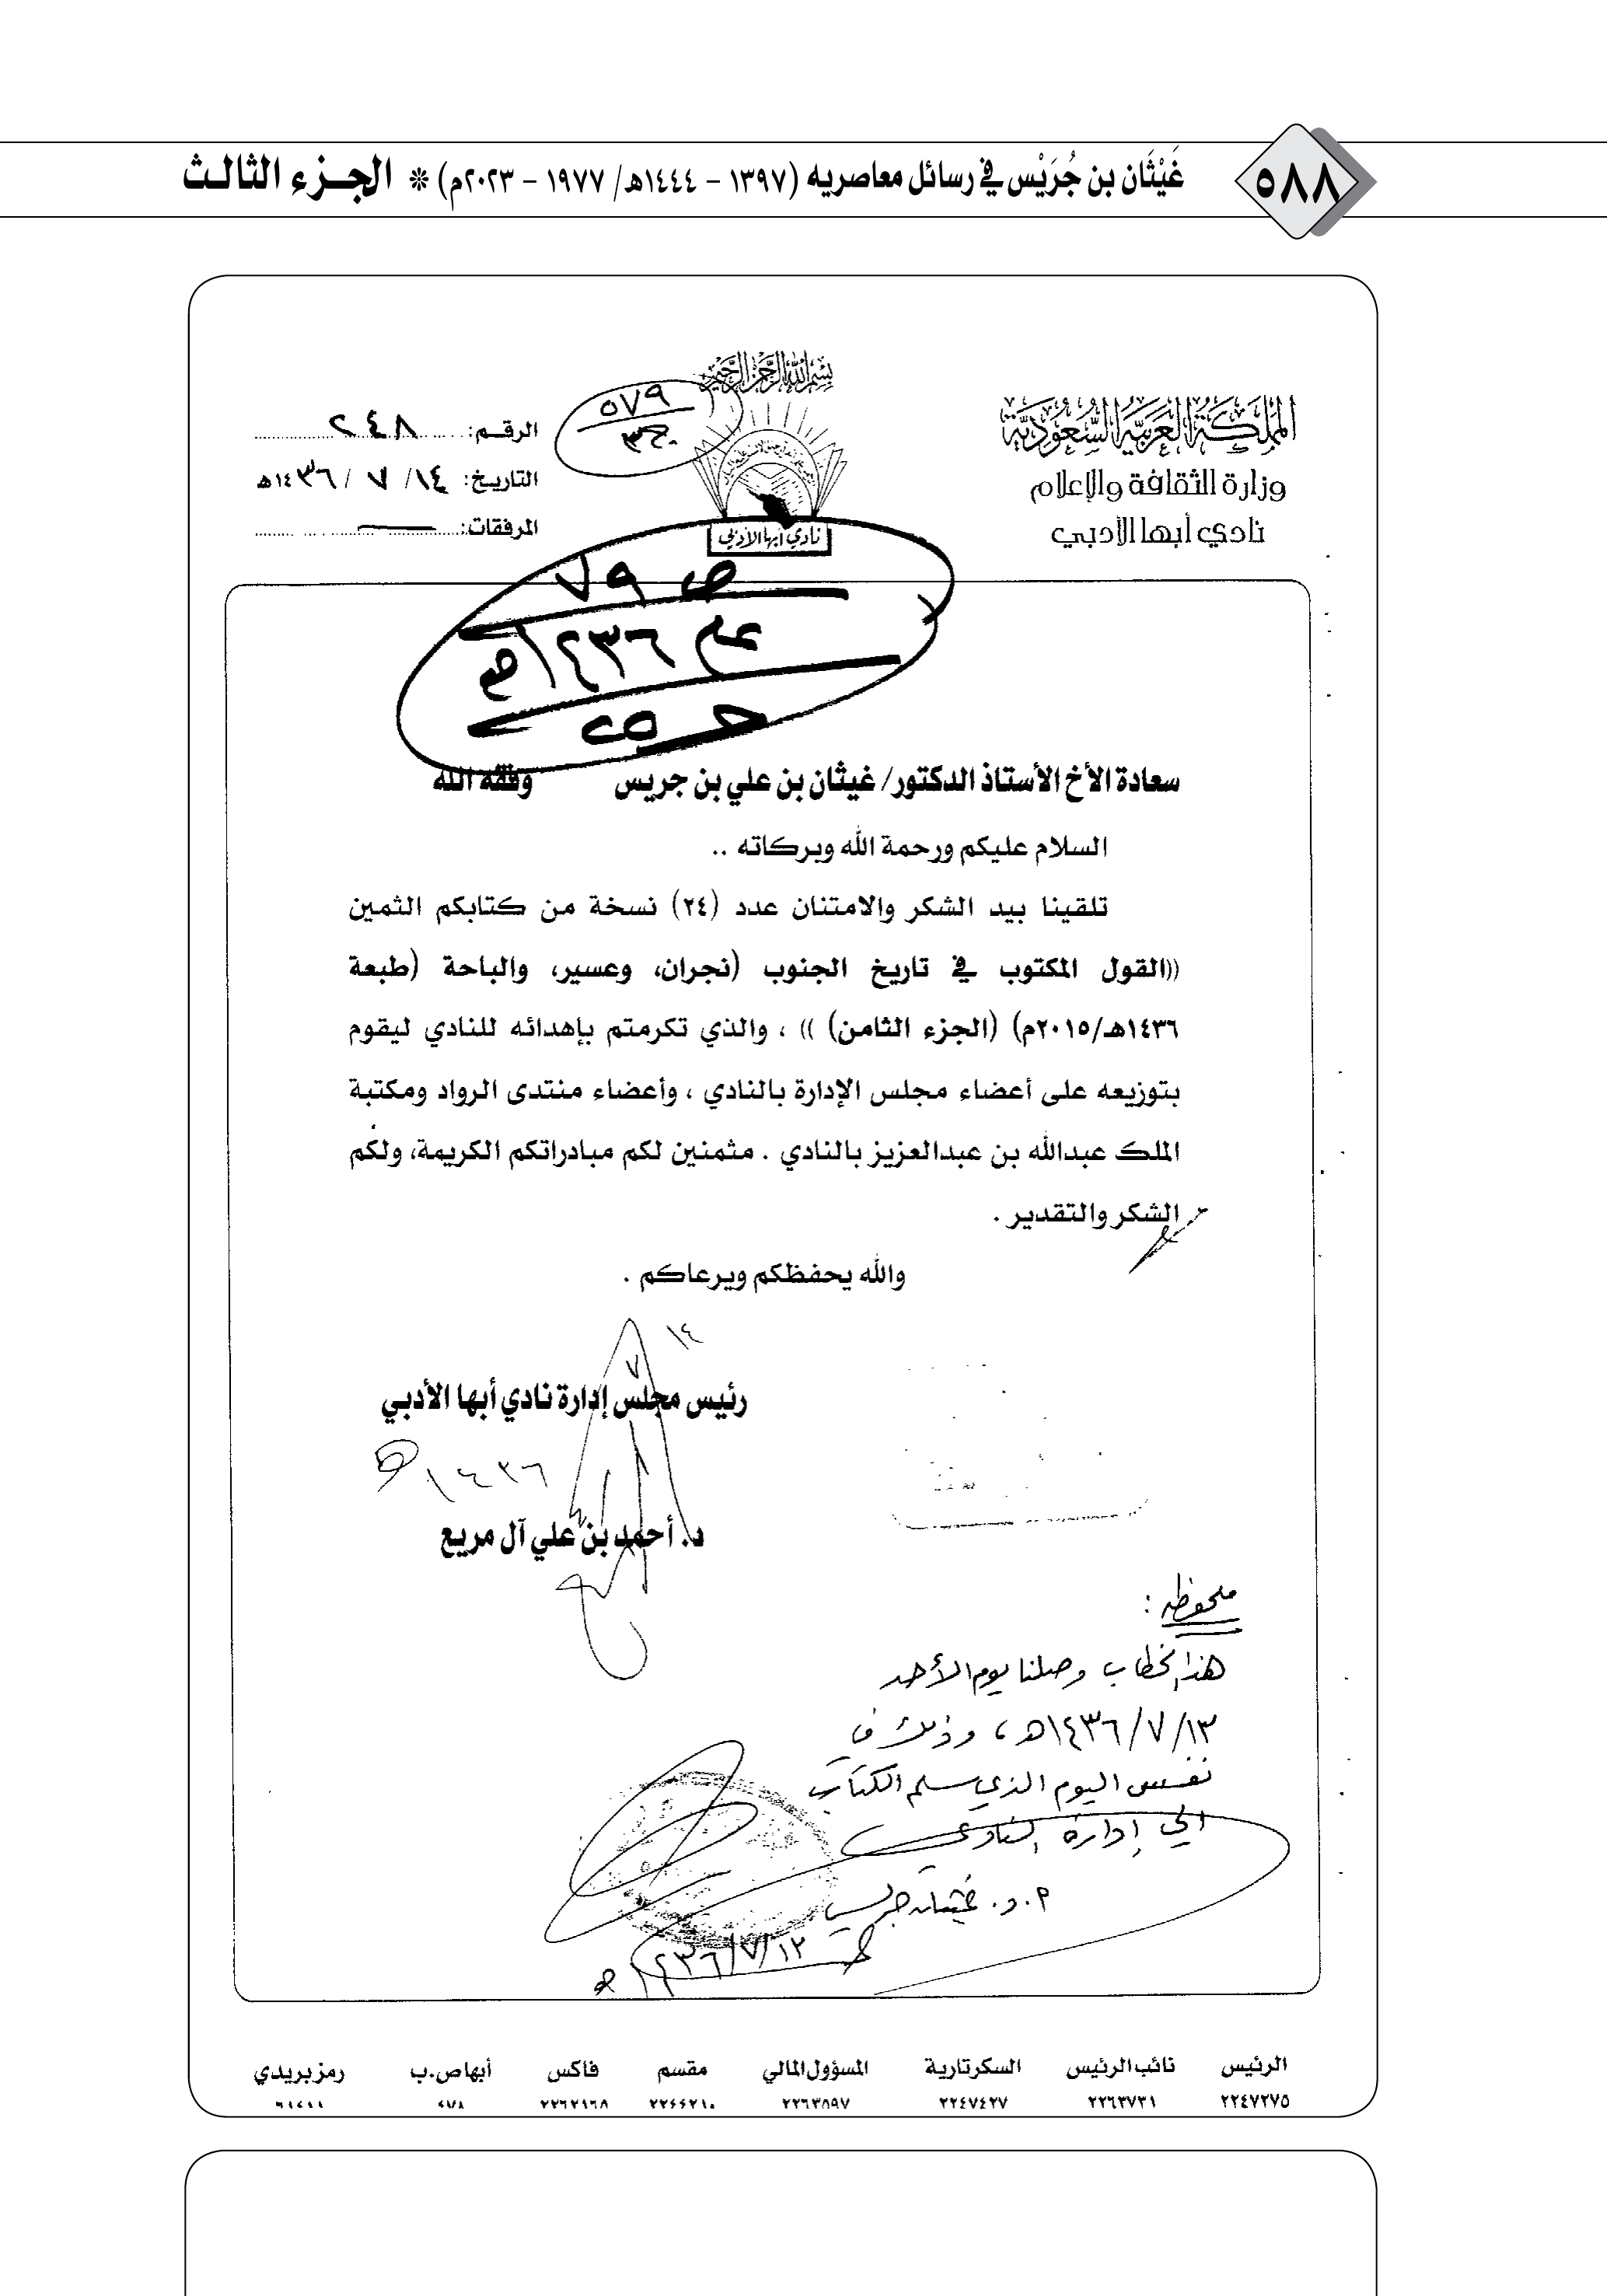 ٥٨٨
غَيْثَان بن جُرَيْس في رسائل معاصريه (١٣٩٧ - ١٤٤٤هـ/ ١٩٧٧ - ٢٠٢٣م) * الجـزء الثالـث
بسم الله الرحمن الرحيم
المملكة العربية السعودية
وزارة الثقافة والإعلام
نادي أبها الأدبي
نادي أبها الأدبي
الرقـم: ٢٤٨
التاريـخ: ١٤/ ٧ / ١٤٣٦هـ
المرفقات:
٥٧٩
ص ٧٩
عام ١٤٣٦هـ
سعادة الأخ الأستاذ الدكتور/ غيثان بن علي بن جريس وفقه الله
السلام عليكم ورحمة الله وبركاته ..
تلقينا بيد الشكر والامتنان عدد (٢٤) نسخة من كتابكم الثمين
((القول المكتوب في تاريخ الجنوب (نجران، وعسير، والباحة (طبعة
١٤٣٦هـ/٢٠١٥م) (الجزء الثامن) )) ، والذي تكرمتم بإهدائه للنادي ليقوم
بتوزيعه على أعضاء مجلس الإدارة بالنادي ، وأعضاء منتدى الرواد ومكتبة
الملك عبدالله بن عبدالعزيز بالنادي . مثمنين لكم مبادراتكم الكريمة، ولكم
الشكر والتقدير .
والله يحفظكم ويرعاكم .
١٤
٧
رئيس مجلس إدارة نادي أبها الأدبي
١٤٣٦هـ
د. أحمد بن علي آل مريع
ملحوظه :
هذا الخطاب وصلنا يوم الأحد
١٤٣٦/٧/١٣هـ ، وذلك في
نفس اليوم الذي سلم الكتاب
إلى إدارة النادي
أ.د. غيثان جريس
١٤٣٦/٧/١٣هـ
الرئيس نائب الرئيس السكرتارية المسؤول المالي مقسم فاكس أبها ص.ب رمز بريدي
٢٢٤٧٢٧٥ ٢٢٦٣٧٣١ ٢٢٤٧٤٢٧ ٢٢٦٣٨٩٧